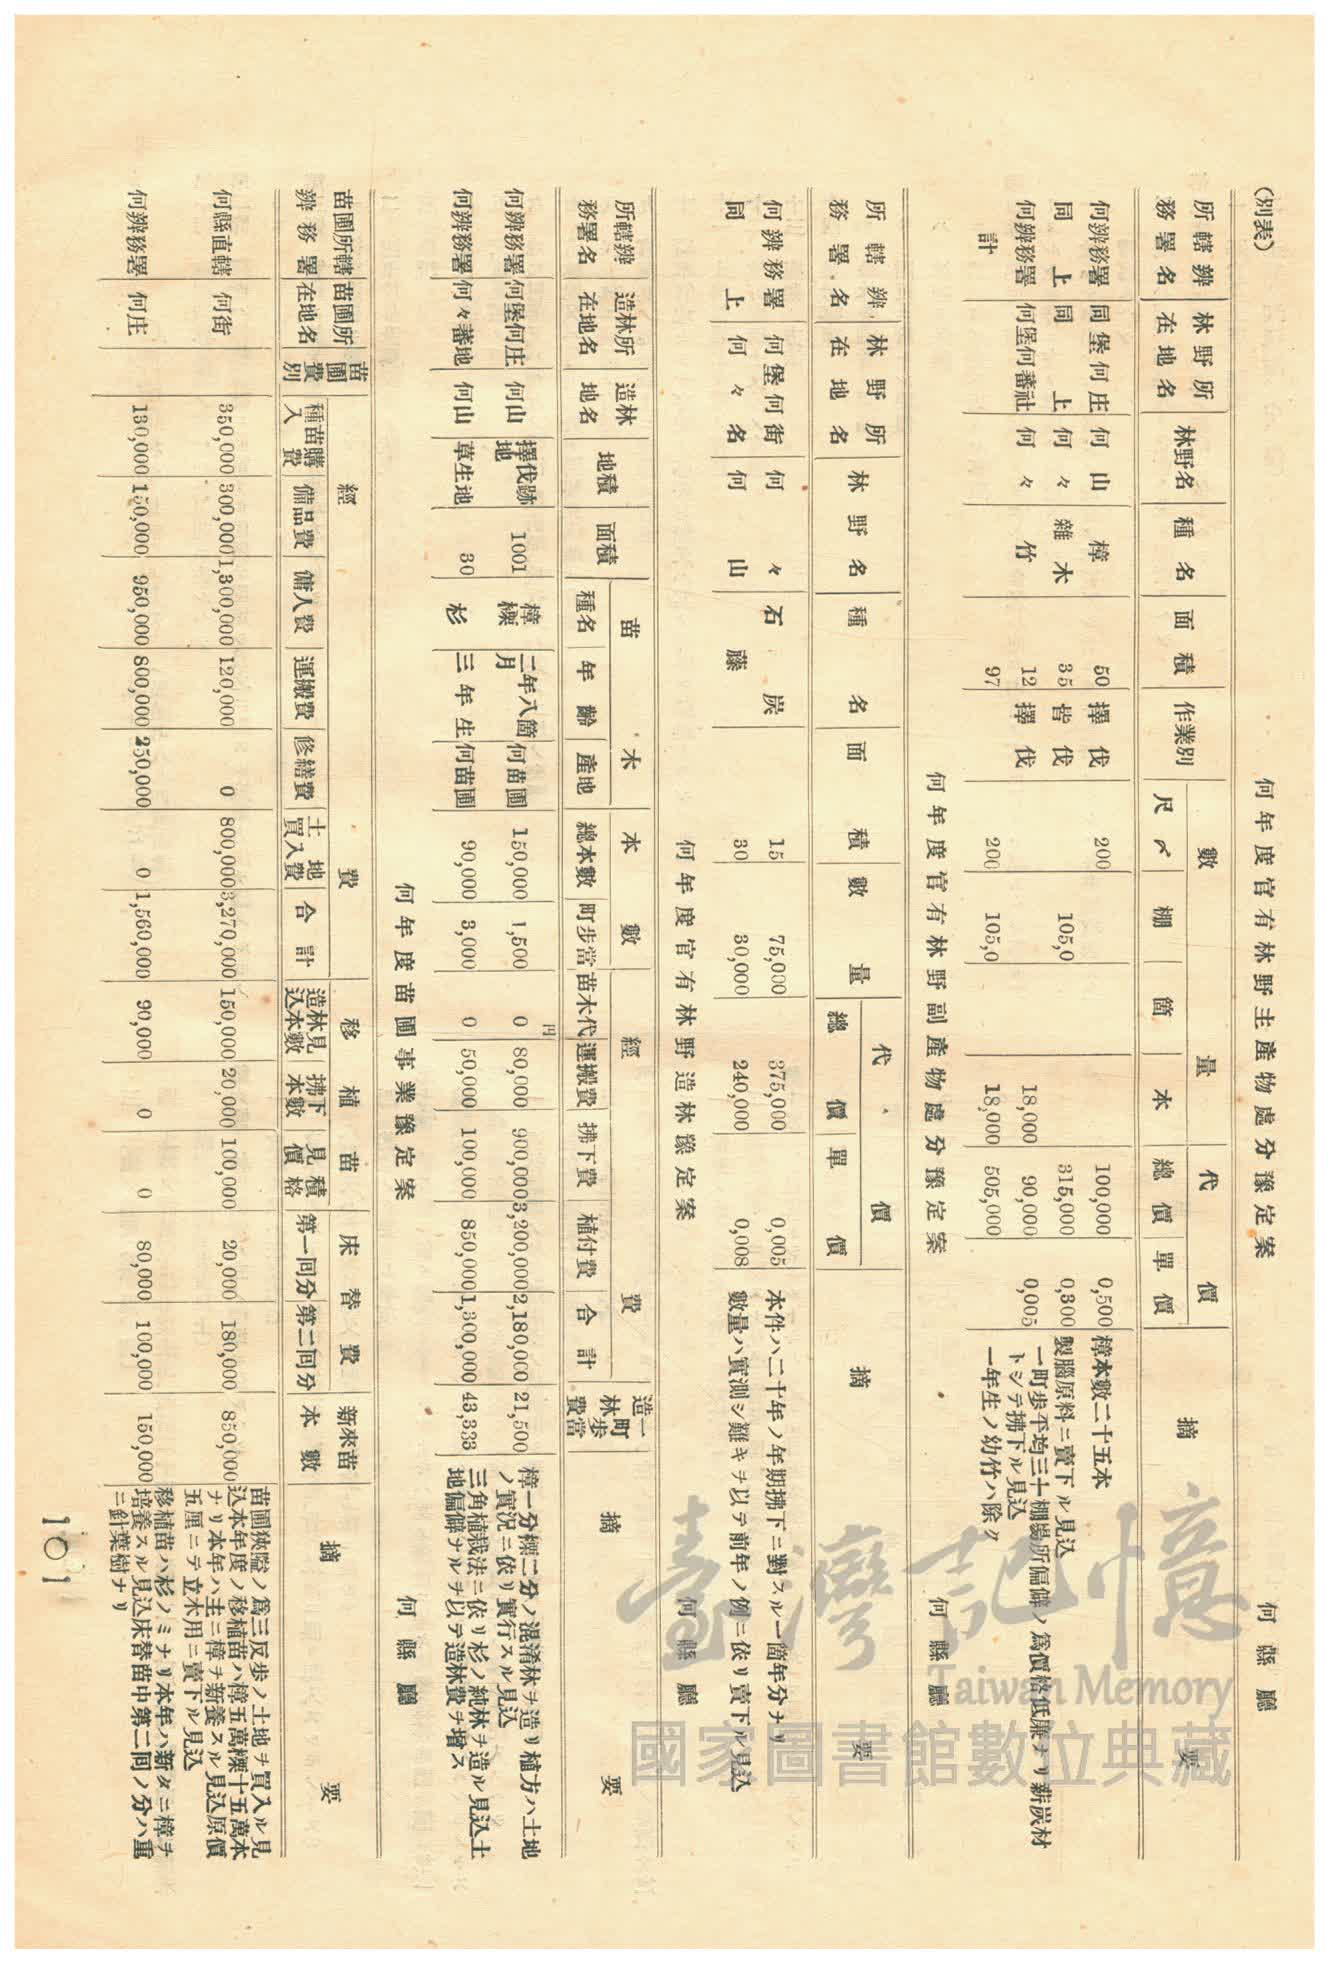 (別表)
何年度官有林野主產物處分豫定案
何縣廳
所轄辨務署名 林野所在地名 林野名 種名 面積 作業別 數量 尺〆 棚 箇 本 代價 總價 單價 摘要
何辨務署 同堡何庄 何山 樟 50 擇伐 200 100,000 0,500 樟本數二十五本
同上 同上 何々 雜木 35 皆伐 105,0 315,000 0,300 製腦原料ニ賣下ル見込
何辨務署 何堡何蕃社 何々 竹 12 擇伐 18,000 90,000 0,005 一町步平均三十棚場所偏僻ノ爲價格低廉ナリ薪炭材トシテ拂下ル見込
計 97 200 105,0 18,000 505,000 一年生ノ幼竹ハ除ク
何年度官有林野副產物處分豫定案
何縣廳
所轄辨務署名 林野所在地名 林野名 種名 面積 數量 代價 總價 單價 摘要
何辨務署 何堡何街 何々 石炭 15 75,000 375,000 0,005 本件ハ二十年ノ年期拂下ニ對スル一箇年分ナリ
同上 何々名 何山 藤 30 30,000 240,000 0,008 數量ハ實測シ難キヲ以テ前年ノ例ニ依リ賣下ル見込
何年度官有林野造林豫定案
何縣廳
所轄辨務署名 造林所在地名 造林地名 地積 面積 苗木 種名 年齡 產地 本數 總本數 町步當 經費 苗木代 運搬費 拂下費 植付費 合計 造林一町步當費 摘要
円
何辨務署 何堡何庄 何山 擇伐跡地 1001 樟 櫟 二年八箇月 何苗圃 150,000 1,500 0 80,000 900,000 3,200,000 2,180,000 21,500 樟一分櫟二分ノ混淆林ヲ造リ植方ハ土地ノ實況ニ依リ實行スル見込
何辨務署 何々蕃地 何山 草生地 30 杉 三年生 何苗圃 90,000 3,000 0 50,000 100,000 850,000 1,300,000 43,333 三角植栽法ニ依リ杉ノ純林ヲ造ル見込土地偏僻ナルヲ以テ造林費ヲ增ス
何年度苗圃事業豫定案
何縣廳
苗圃所轄辨務署 苗圃所在地名 苗圃費別 經費 種苗購入費 備品費 傭人費 運搬費 修繕費 土地買入費 合計 移植苗 造林見込本數 拂下本數 見積價格 床替費 第一回分 第二回分 新來苗本數 摘要
何縣直轄 何街 350,000 300,000 1,300,000 120,000 0 800,000 3,270,000 150,000 20,000 100,000 20,000 180,000 850,000 苗圃狹隘ノ爲三反步ノ土地ヲ買入ル見込本年度ノ移植苗ハ樟五萬櫟十五萬本ナリ本年ハ主ニ樟ヲ新養スル見込原價五厘ニテ立木用ニ賣下ル見込
何辨務署 何庄 130,000 150,000 950,000 800,000 250,000 0 1,560,000 90,000 0 0 80,000 100,000 150,000 移植苗ハ杉ノミナリ本年ハ新タニ樟ヲ培養スル見込床替苗中第二回ノ分ハ重ニ針葉樹ナリ
101
臺灣記憶
Taiwan Memory
國家圖書館數位典藏